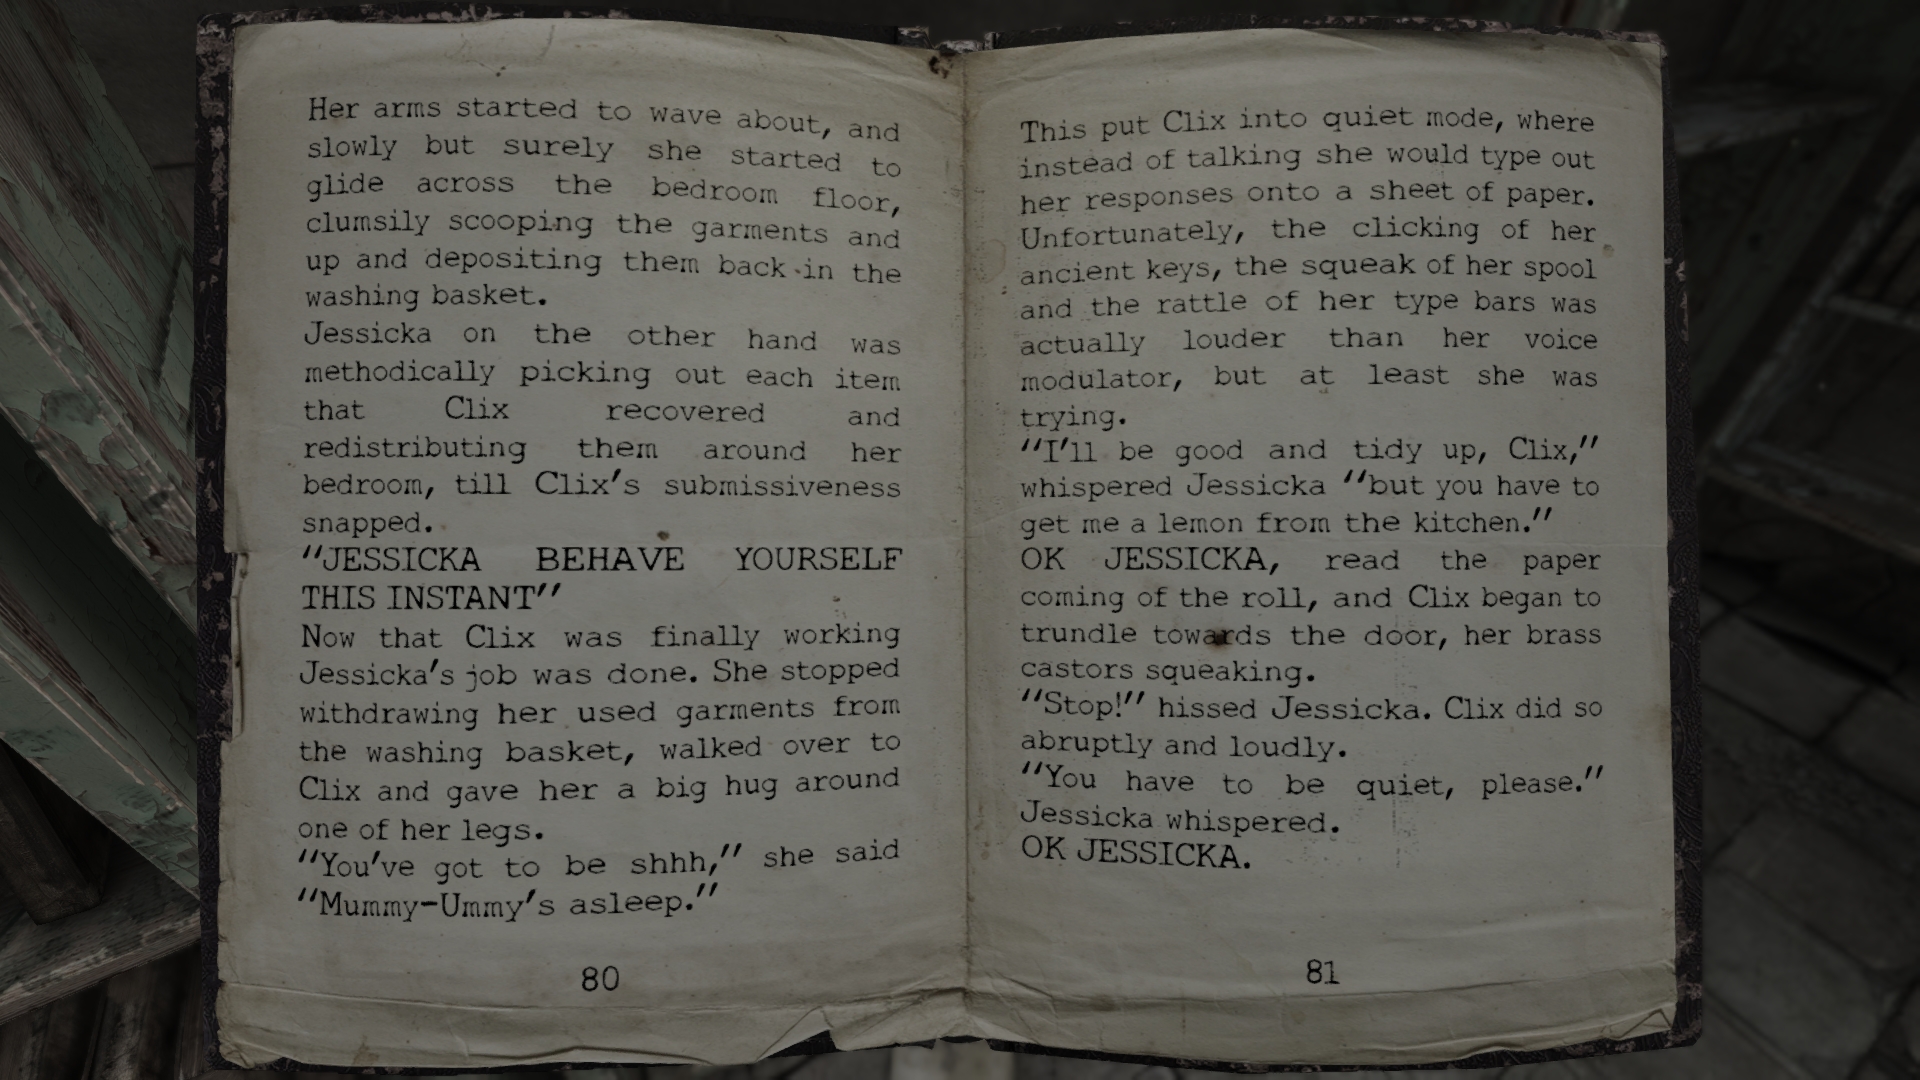 Her arms started to wave about, and
slowly but surely she started to
glide across the bedroom floor,
clumsily scooping the garments and
up and depositing them back in the
washing basket.
Jessicka on the other hand was
methodically picking out each item
that Clix recovered and
redistributing them around her
bedroom, till Clix's submissiveness
snapped.
"JESSICKA BEHAVE YOURSELF
THIS INSTANT"
Now that Clix was finally working
Jessicka's job was done. She stopped
withdrawing her used garments from
the washing basket, walked over to
Clix and gave her a big hug around
one of her legs.
"You've got to be shhh," she said
"Mummy-Ummy's asleep."
80
This put Clix into quiet mode, where
instead of talking she would type out
her responses onto a sheet of paper.
Unfortunately, the clicking of her
ancient keys, the squeak of her spool
and the rattle of her type bars was
actually louder than her voice
modulator, but at least she was
trying.
"I'll be good and tidy up, Clix,"
whispered Jessicka "but you have to
get me a lemon from the kitchen."
OK JESSICKA, read the paper
coming of the roll, and Clix began to
trundle towards the door, her brass
castors squeaking.
"Stop!" hissed Jessicka. Clix did so
abruptly and loudly.
"You have to be quiet, please."
Jessicka whispered.
OK JESSICKA.
81